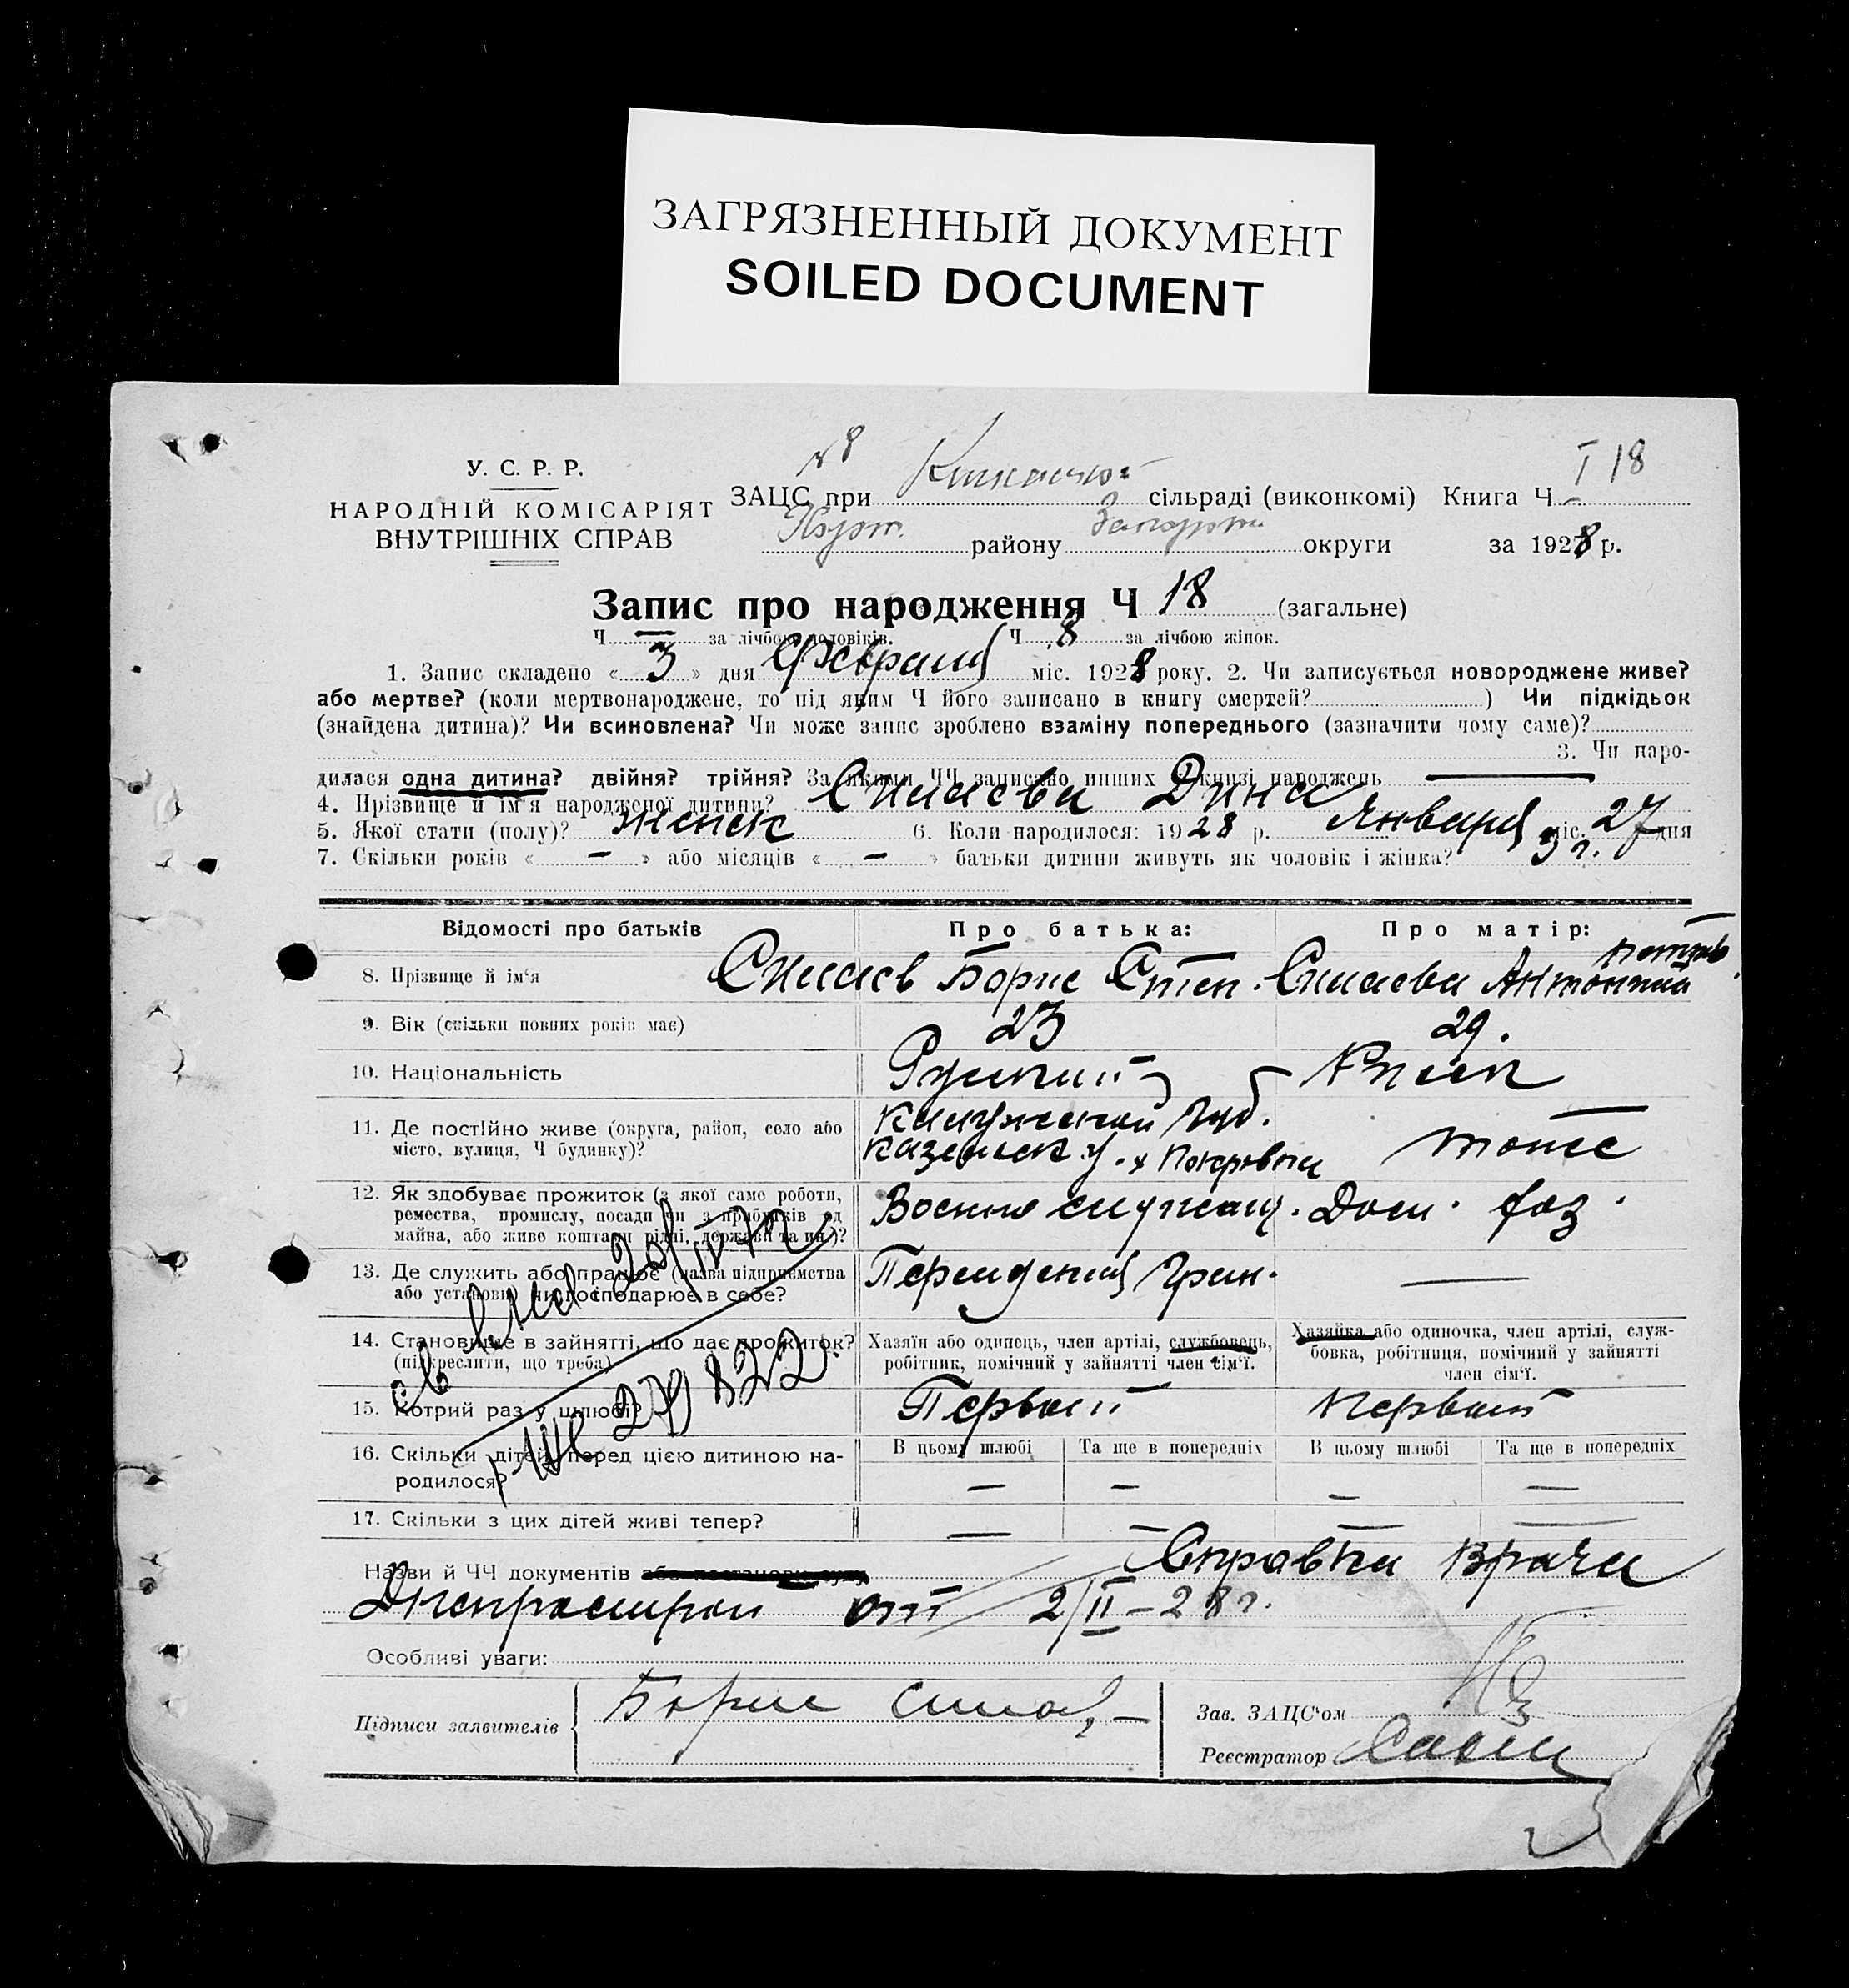 ЗАГРЯЗНЕННЫЙ ДОКУМЕНТ
SOILED DOCUMENT
№ 8
І 18
У. С. Р. Р.
НАРОДНІЙ КОМІСАРІЯТ
ВНУТРІШНІХ СПРАВ
ЗАЦС при сільраді (виконкомі) Книга Ч
району округи за 1928 р.
Запис про народження Ч 18 (загальне)
Ч — за лічбою чоловіків. Ч 8 за лічбою жінок.
1. Запис складено « 3 » дня Февраля міс. 1928 року. 2. Чи записується новороджене живе?
або мертве? (коли мертвонароджене, то під яким Ч його записано в книгу смертей? ) Чи підкідьок
(знайдена дитина)? Чи всиновлена? Чи може запис зроблено взаміну попереднього (зазначити чому саме)?
3. Чи наро-
дилася одна дитина? двійня? трійня? За якими ЧЧ записано инших в книзі народжень —
4. Прізвище й ім'я народженої дитини? Дина
5. Якої стати (полу)? женск 6. Коли народилося: 1928 р. Января міс. 27 дня
7. Скільки років « — » або місяців « — » батьки дитини живуть як чоловік і жінка? 3 г.
Відомості про батьків Про батька: Про матір:
8. Прізвище й ім'я Борис Степ. Антонина
9. Вік (скільки повних років має) 23 29.
10. Національність Русский
11. Де постійно живе (округа, район, село або
місто, вулиця, Ч будинку)?
Калужской Губ.
тоже
12. Як здобуває прожиток (з якої саме роботи,
ремества, промислу, посади чи з прибутків од
майна, або живе коштами рідні, держави та ин.)?
Военно служащ. Дом. хоз.
13. Де служить або працює (назва підприємства
або установи, чи господарює в себе?
—
14. Становище в зайнятті, що дає прожиток?
(підкреслити, що треба)
Хазяїн або одинець, член артілі, службовець,
робітник, помічний у зайнятті член сім'ї.
Хазяйка або одиночка, член артілі, служ-
бовка, робітниця, помічний у зайнятті
член сім'ї.
15. Котрий раз у шлюбі? Первый Первый
16. Скільки дітей перед цією дитиною на-
родилося?
В цьому шлюбі Та ще в попередніх В цьому шлюбі Та ще в попередніх
— — — —
17. Скільки з цих дітей живі тепер? — — — —
Назви й ЧЧ документів або постанови суду Справка врача
Днепростроя от 2/II – 28 г.
Особливі уваги:
Підписи заявителів Борис
Зав. ЗАЦС'ом
Реєстратор